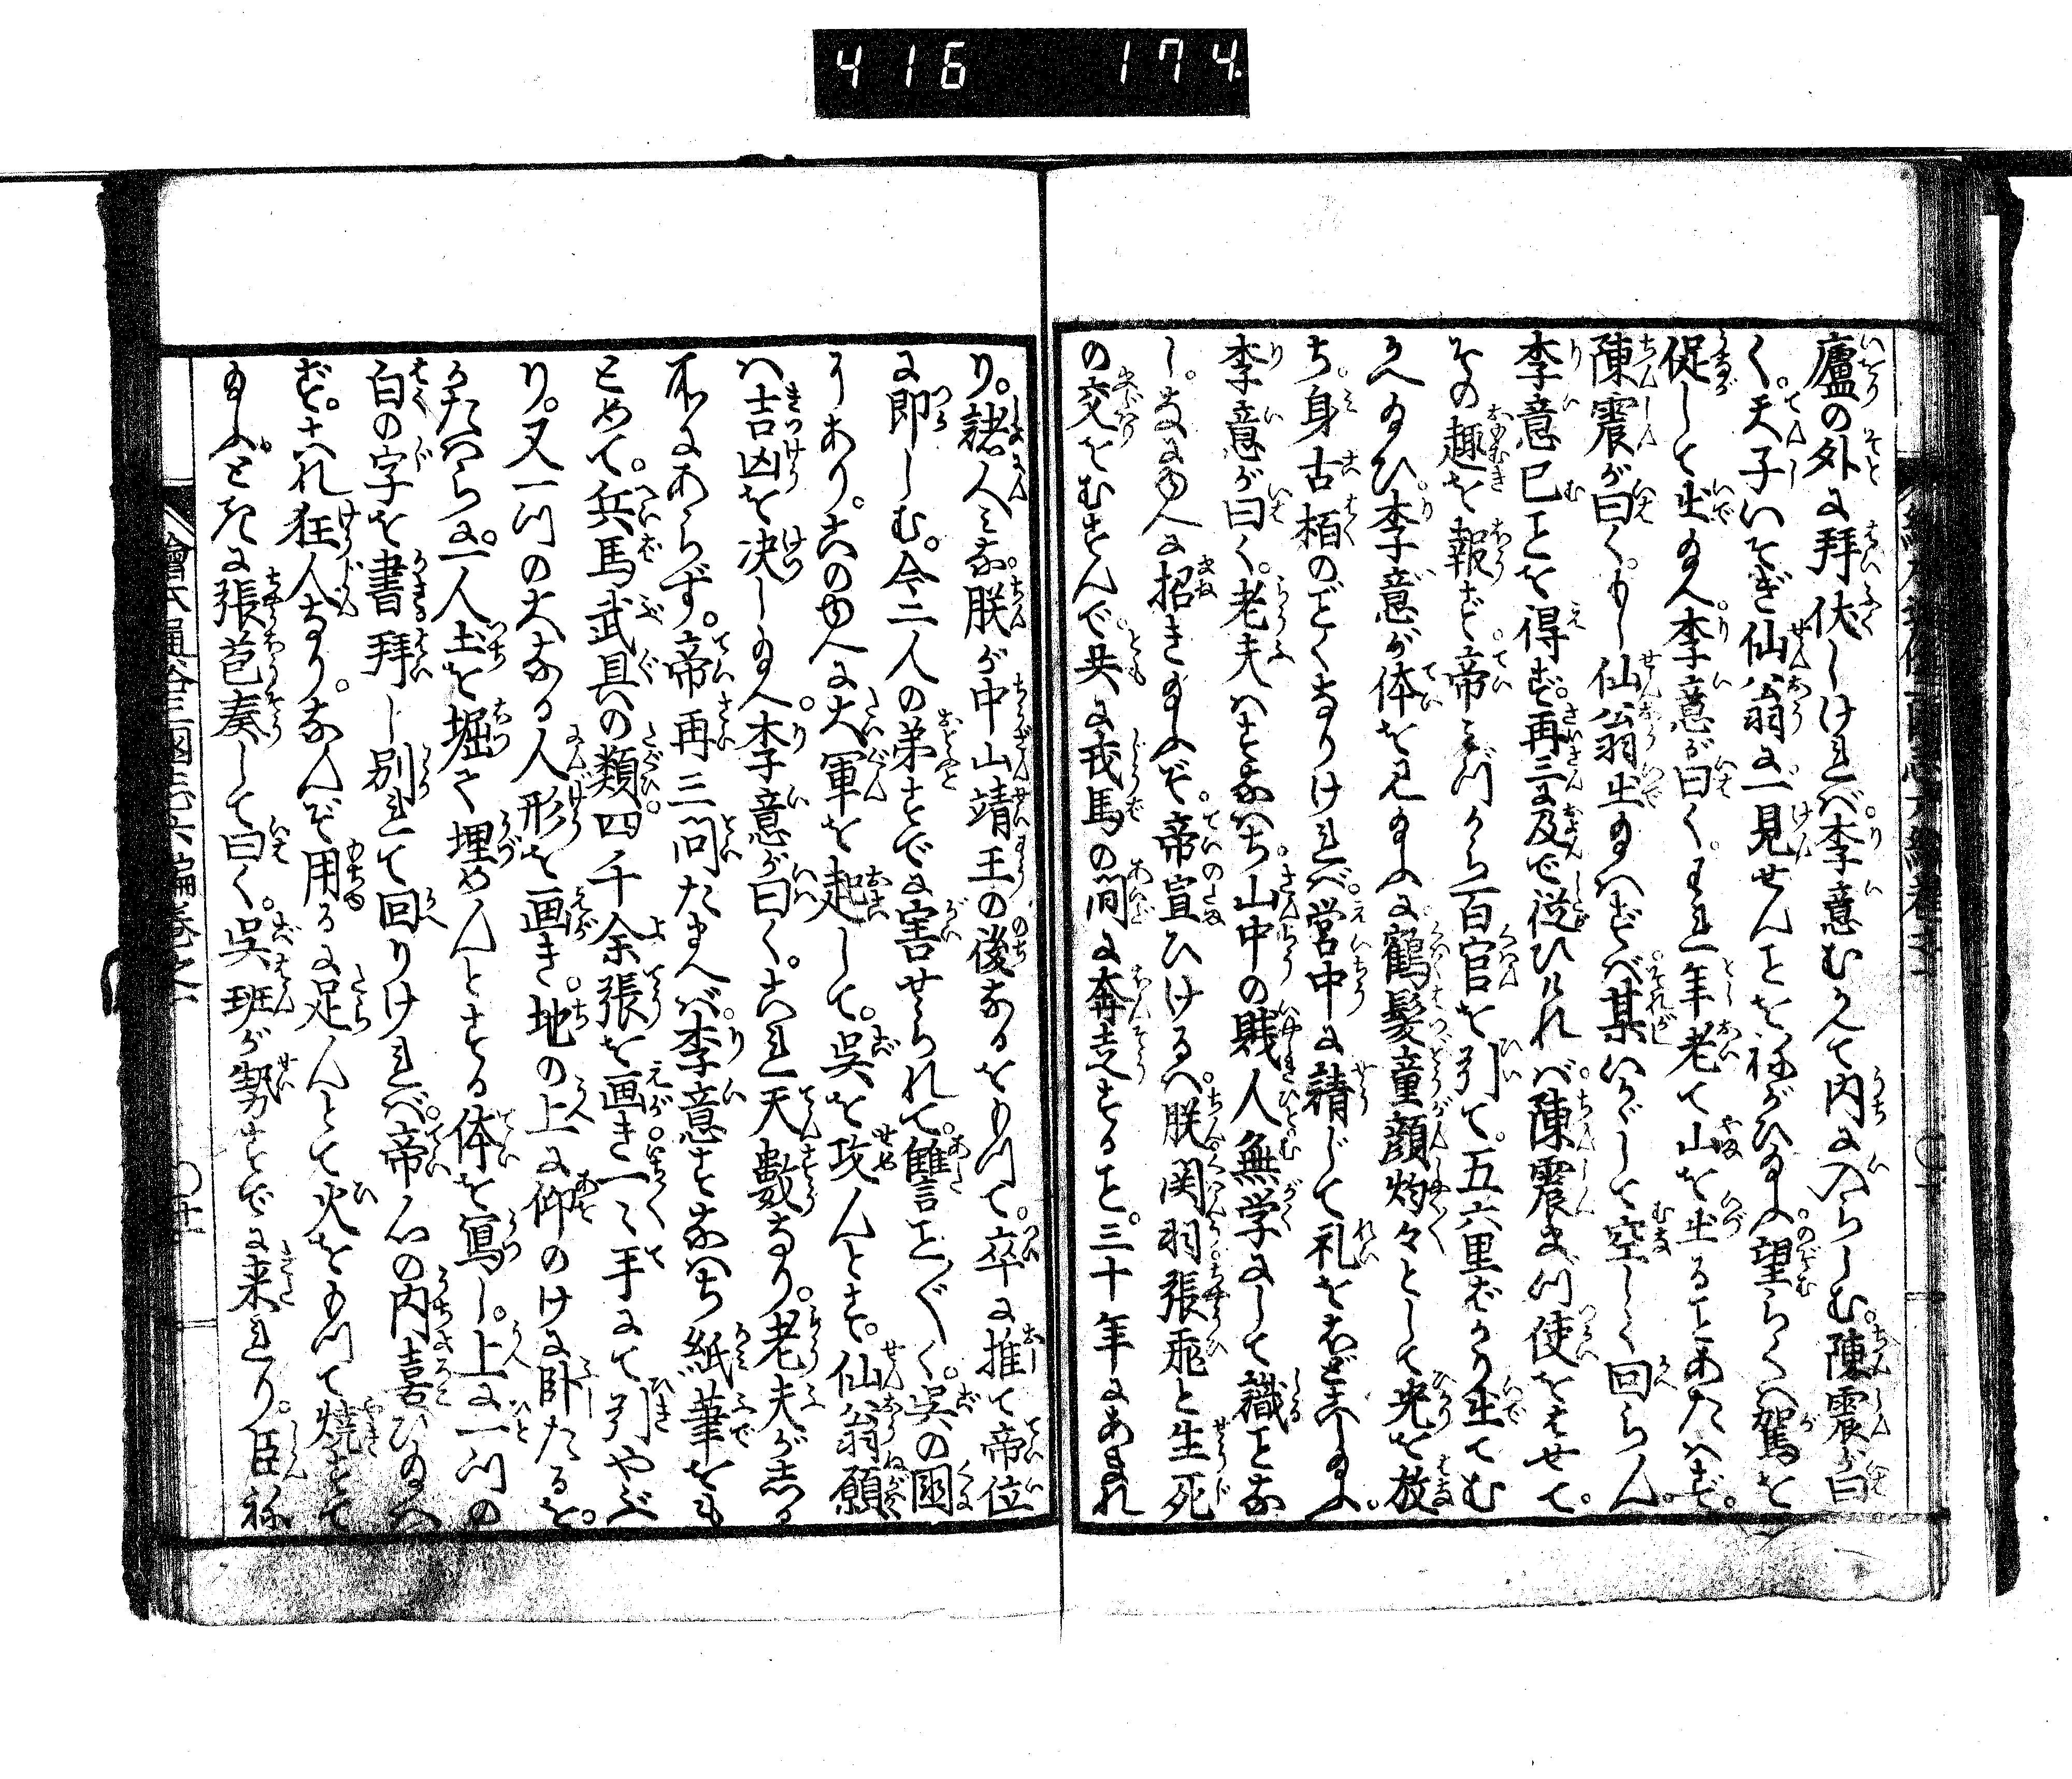 416 174
廬の外に拝伏しければ。李意むかへて内に入らしむ。陳震が曰
く。天子いそぎ仙翁に一見せんことを祢がひ給ふ。望らくハ駕を
促して出給へ。李意が曰く。われ年老て山を出ることあたハず。
陳震が曰く。もし仙翁出給ハずバ某いかがして空しく回らん。
李意已ことを得ず。再三に及で従ひければ。陳震まづ使をはせて。
その趣を報ず。帝みづから百官を引て。五六里ばかり出てむ
かへ給ひ李意が体を見給ふに。鶴髪童顔灼々として光を放
ち。身古栢のごとくなりければ。営中に請じて礼をほどこし給ふ。
李意が曰く。老夫ハすなハち。山中の賤人無学にして識ことな
し。なに由へに招き給ふぞ。帝宣ひけるハ。朕関羽張飛と生死
の交をむすんで。共に戎馬の間に奔走すること。三十年にあまれ
り。諸人みな。朕が中山靖王の後なるをもつて。卒に推て帝位
に即しむ。今二人の弟すでに害せられて。讐ことごとく。呉の國
にあり。この由へに大軍を起して。呉を攻んとす。仙翁願
ハ吉凶を决し給へ。李意が曰く。これ天數なり。老夫が志る
所にあらず。帝再三問たまへバ。李意すなハち紙筆をも
とめて。兵馬武具の類。四千余張を画き。一々手にて引やぶ
り。又一つの大なる人形を画き。地の上に仰のけに臥たるを。
かたハらに。一人土を堀て埋めんとする体を寫し。上に一つの
白の字を書拜し別れて回りければ。帝心の内喜び給ハ
ず。これ狂人なり。なんぞ用るに足んとて火をもつて焼すて
給ふ。ときに張苞奏して曰く。呉班が勢すでに来れり。臣祢